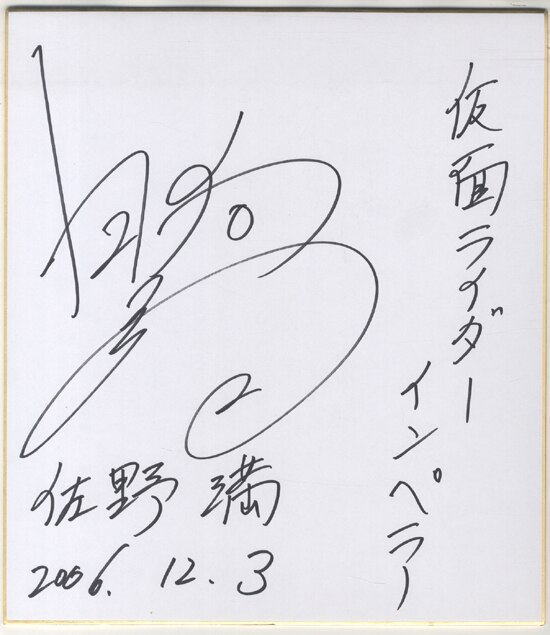 仮面ライダー
インペラー
佐野 満
2006. 12. 3